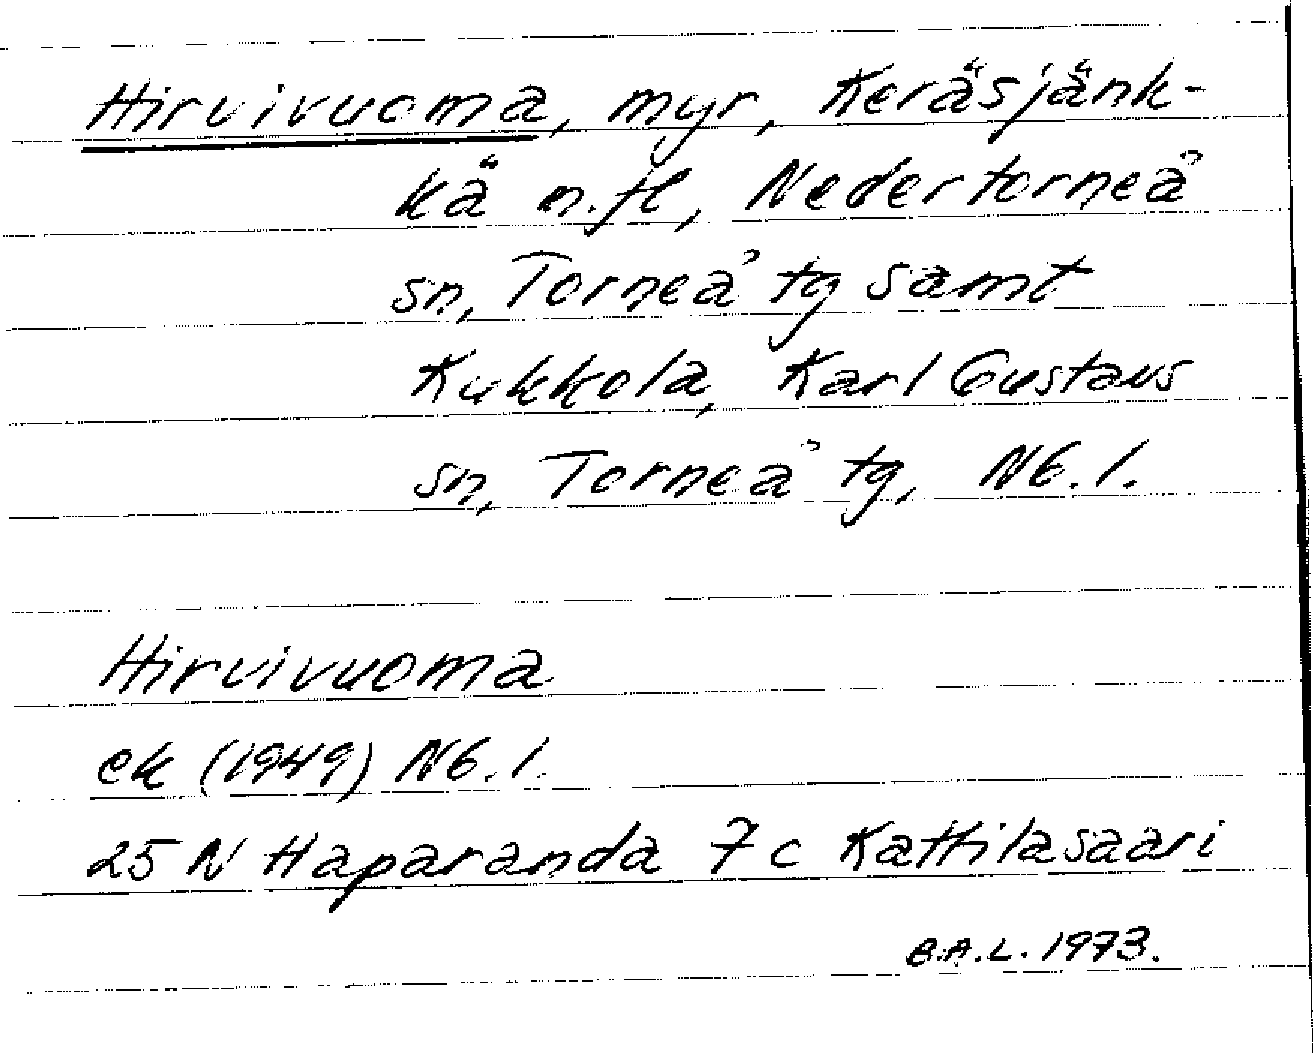 Hirvivuoma, myr, Keräsjänk-
kä m.fl, Nedertorneå
sn, Torneå tg samt
Kukkola, Karl Gustavs
sn, Torneå tg, Nb. l.
Hirvivuoma
ek (1949) Nb. l.
25 N Haparanda 7 c Kattilasaari
B.A.L. 1973.